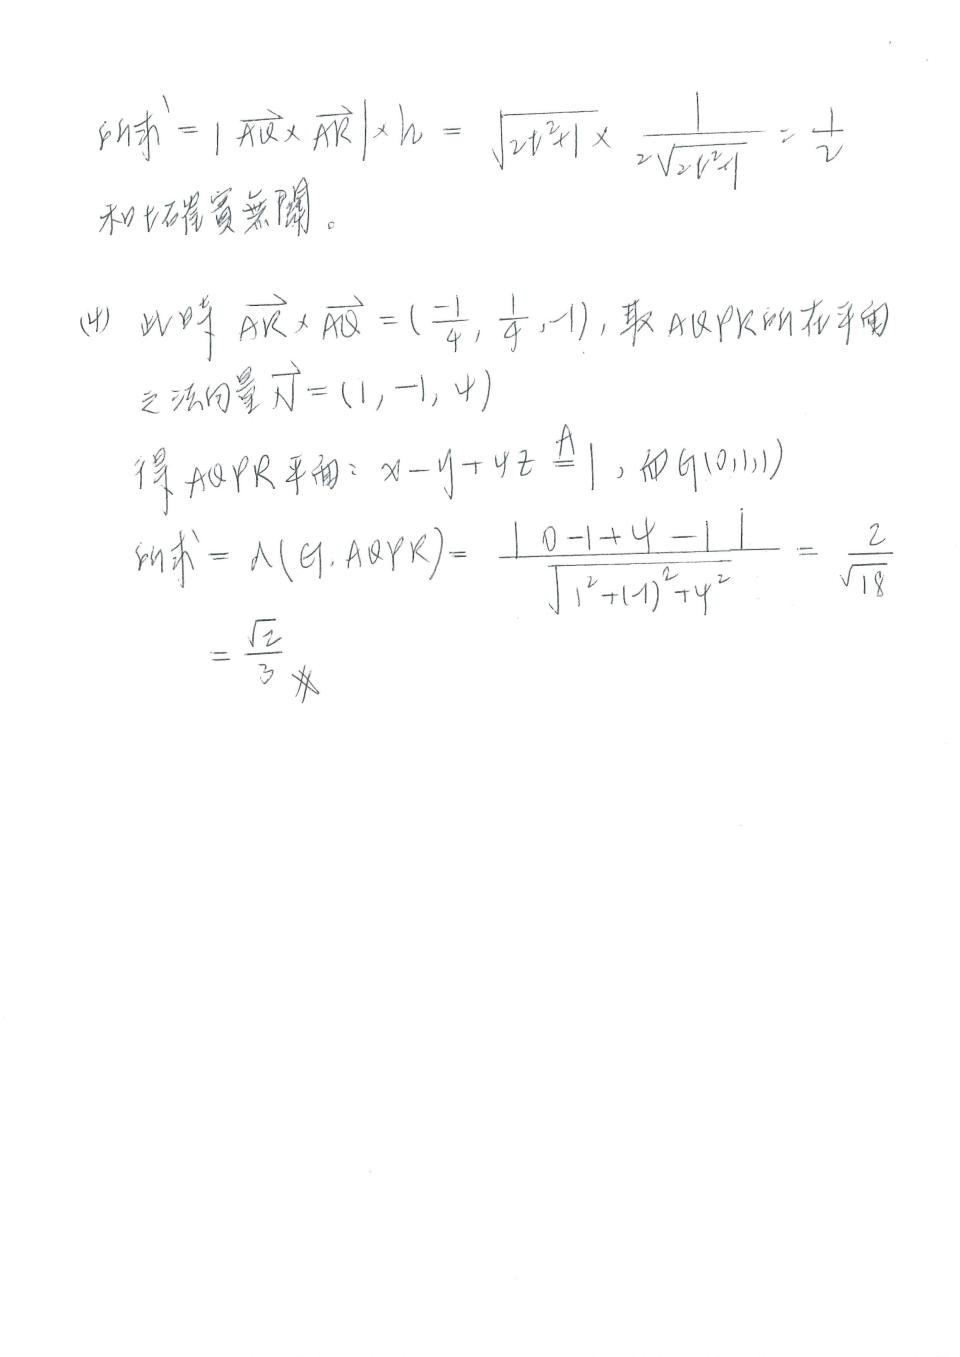 所求 = |AQ⃗ × AR⃗| × h = √(2t²+1) × 1/(2√(2t²+1)) = 1/2
和t確實無關。
(4) 此時 AR⃗ × AQ⃗ = (-1/4, 1/4, -1), 取 AQPR所在平面
之法向量 N⃗ = (1, -1, 4)
得 AQPR平面: x-y+4z ≜(A) 1, 而G(0,1,1)
所求 = d(G, AQPR) = |0-1+4-1| / √(1²+(-1)²+4²) = 2/√18
= √2/3